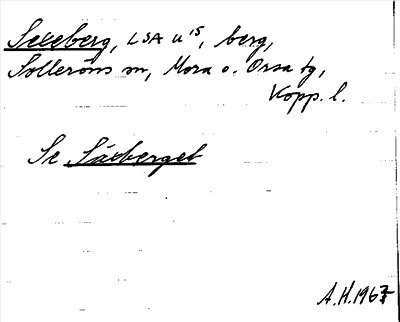 Sexeberg, LSA u 15, berg,
Solleröns sn, Mora o. Orsa tg,
Kopp. l.
Se Säxberget
A.H. 1967